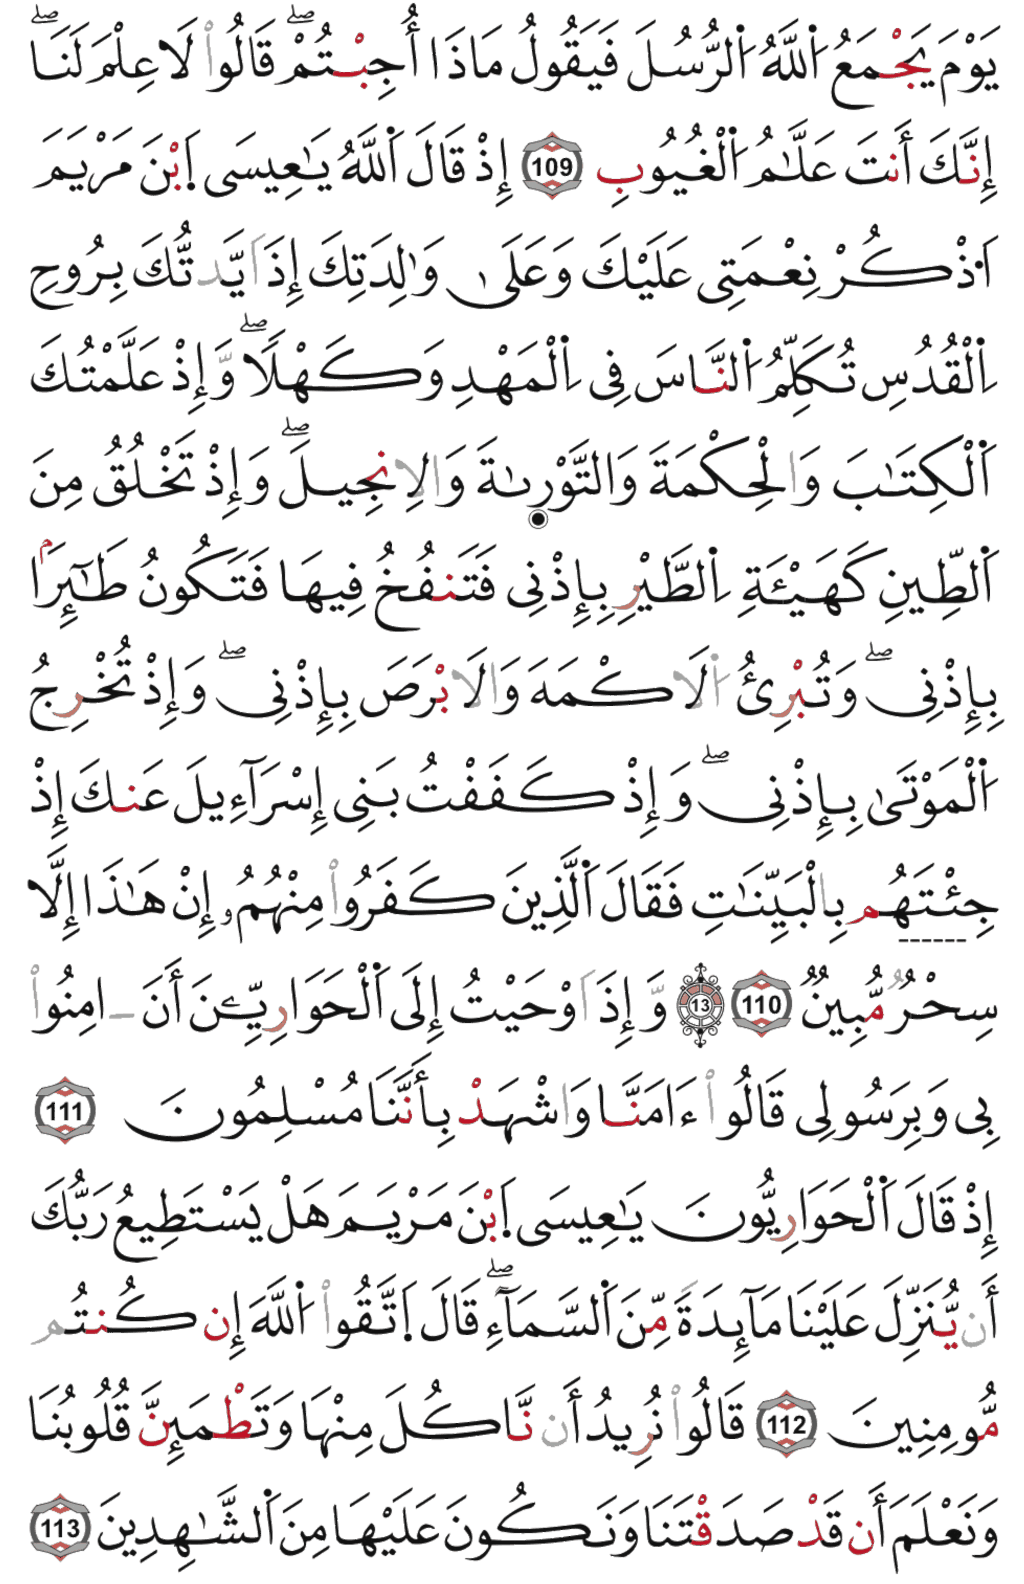 يَوْمَ يَجْمَعُ اُ۬للَّهُ اُ۬لرُّسُلَ فَيَقُولُ مَاذَا أُجِبْتُمْۖ قَالُواْ لَا عِلْمَ لَنَاۖ
إِنَّكَ أَنتَ عَلَّٰمُ اُ۬لْغُيُوبِ 109 إِذْ قَالَ اَ۬للَّهُ يَٰعِيسَى اَ۪بْنَ مَرْيَمَ
اَ۟ذْكُرْ نِعْمَتِى عَلَيْكَ وَعَلَىٰ وَٰلِدَتِكَ إِذَ اَيَّدتُّكَ بِرُوحِ
اِ۬لْقُدُسِ تُكَلِّمُ اُ۬لنَّاسَ فِى اِ۬لْمَهْدِ وَكَهْلًاۖ وَّإِذْ عَلَّمْتُكَ
اَ۬لْكِتَٰبَ وَالْحِكْمَةَ وَالتَّوْر۪ىٰةَ وَالِانجِيلَۖ وَإِذْ تَخْلُقُ مِنَ
اَ۬لطِّينِ كَهَيْـَٔةِ اِ۬لطَّيْرِ بِإِذْنِى فَتَنفُخُ فِيهَا فَتَكُونُ طَٰٓئِرَۢا
بِإِذْنِىۖ وَتُبْرِئُ اُ۬لَاكْمَهَ وَالَابْرَصَ بِإِذْنِىۖ وَإِذْ تُخْرِجُ
اُ۬لْمَوْتَىٰ بِإِذْنِىۖ وَإِذْ كَفَفْتُ بَنِى إِسْرَآءِيلَ عَنكَ إِذْ
جِئْتَهُم بِالْبَيِّنَٰتِ فَقَالَ اَ۬لَّذِينَ كَفَرُواْ مِنْهُمُۥ إِنْ هَٰذَا إِلَّا
سِحْرٌ مُّبِينٌ 110 13 وَّإِذَ اَوْحَيْتُ إِلَى اَ۬لْحَوَارِيِّـۧنَ أَنَ ـ امِنُواْ
بِى وَبِرَسُولِى قَالُواْ ءَامَنَّا وَاشْهَدْ بِأَنَّنَا مُسْلِمُونَ 111
إِذْ قَالَ اَ۬لْحَوَارِيُّونَ يَٰعِيسَى اَ۪بْنَ مَرْيَمَ هَلْ يَسْتَطِيعُ رَبُّكَ
أَن يُّنَزِّلَ عَلَيْنَا مَآئِدَةً مِّنَ اَ۬لسَّمَآءِۖ قَالَ اَ۪تَّقُواْ اُ۬للَّهَ إِن كُنتُم
مُّومِنِينَ 112 قَالُواْ نُرِيدُ أَن نَّاكُلَ مِنْهَا وَتَطْمَئِنَّ قُلُوبُنَا
وَنَعْلَمَ أَن قَدْ صَدَقْتَنَا وَنَكُونَ عَلَيْهَا مِنَ اَ۬لشَّٰهِدِينَ 113